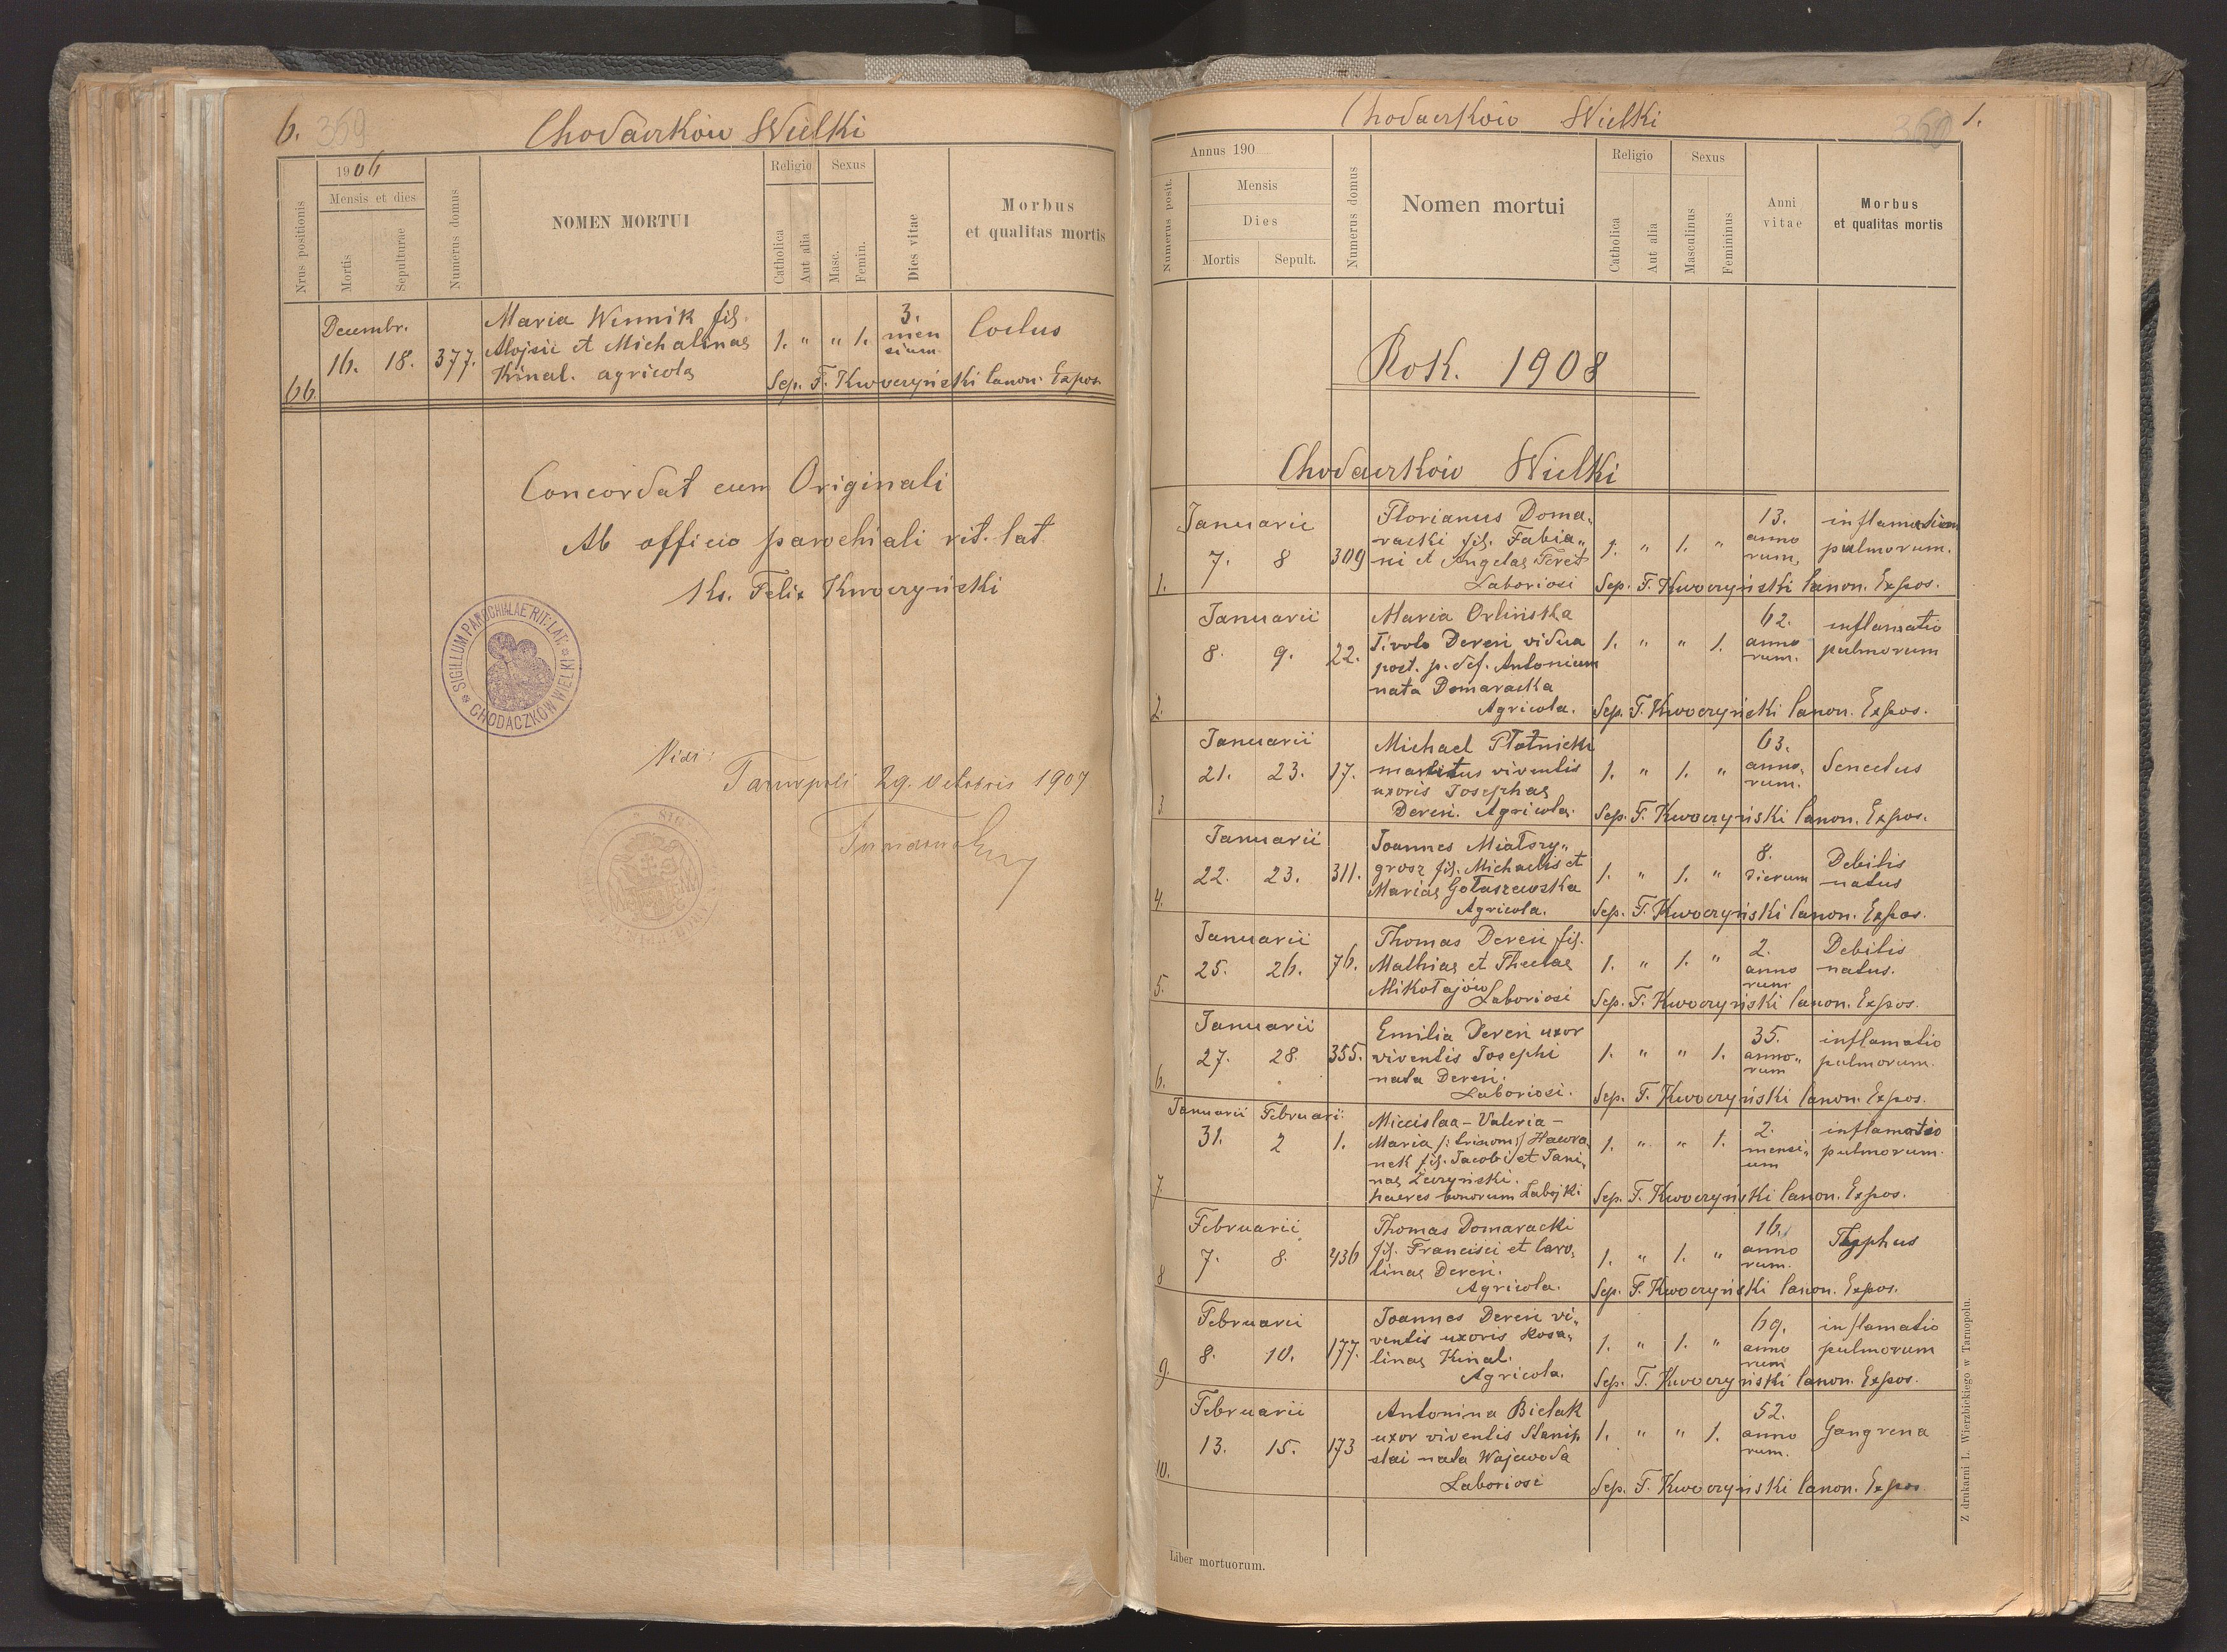 6. 359
Chodaczków Wielki
1906
Mensis et dies
Religio
Sexus
Nrus positionis
Mortis
Sepulturae
Numerus domus
NOMEN MORTUI
Catholica
Aut alia
Masc.
Femin.
Dies vitae
Morbus
et qualitas mortis
Decembr.
66. 16. 18. 377.
Maria Wennik fil.
Alojsii et Michalinae
Kinal. agricola
1. " " 1.
3.
men
sium.
Coclus
Sep. F. Kwoczyński Canon. Expos.
Concordat cum Originali
Ab officio parochiali rit. lat.
Ks. Felix Kwoczyński
SIGILLUM PAROCHIALAE RIT: LAT: * CHODACZKÓW WIELKI *
Vidi:
Tarnopoli 29. Octobris 1907
Chodaczków Wielki
360 1.
Annus 190
Mensis
Dies
Mortis
Sepult.
Numerus posit.
Numerus domus
Nomen mortui
Religio
Sexus
Catholica
Aut alia
Masculinus
Femininus
Anni
vitae
Morbus
et qualitas mortis
Rok. 1908
Chodaczków Wielki
Januarii
1. 7. 8 309
Florianus Doma„
racki fil. Fabia„
ni et Angelae Feret
Laboriosi
1. " 1. "
13.
anno
rum.
inflamatio
pulmorum.
Sep. F. Kwoczyński Canon. Expos.
Januarii
2. 8. 9. 22.
Maria Orlińska
1. voto Dereń vidua
post. p. def. Antonium
nata Domaracka
Agricola.
1. " " 1.
62.
anno
rum.
inflamatio
pulmorum
Sep. F. Kwoczyński Canon. Expos.
Januarii
3 21. 23. 17.
Michael Płotnicki
maritus viventis
uxoris Josephae
Dereń. Agricola.
1. " 1. "
63.
anno„
rum.
Senectus
Sep. F. Kwoczyński Canon. Expos.
Januarii
4. 22. 23. 311.
Joannes Miałszy„
grosz fil. Michaelis et
Mariae Gołaszewska
Agricola.
1. " 1. "
8.
dierum
Debilis
natus
Sep. F. Kwoczyński Canon. Expos.
Januarii
5. 25. 26. 76.
Thomas Dereń fil.
Mathias et Theclae
Mikołajów
Laboriosi
1. " 1. "
2.
anno
rum
Debilis
natus.
Sep. F. Kwoczyński Canon. Expos.
Januarii
6. 27. 28. 355.
Emilia Dereń uxor
viventis Josephi
nata Dereń.
Laboriosi.
1. " " 1.
35.
anno„
rum
inflamatio
pulmorum.
Sep. F. Kwoczyński Canon. Expos.
Januarii Februarii
7. 31. 2 1.
Miecislaa - Valeria -
Maria /: trinom:/ Hawra
nek fil. Jacobi et Jani„
nae
haeres bonorum
1. " " 1.
2.
mensi„
um
inflamatio
pulmorum.
Sep. F. Kwoczyński Canon. Expos.
Februarii
8 7. 8. 436
Thomas Domaracki
fil. Francisci et Caro„
linae Dereń.
Agricola.
1. " 1. "
16.
anno
rum.
Typhus
Sep. F. Kwoczyński Canon. Expos.
Februarii
9. 8. 10. 177.
Joannes Dereń vi„
ventis uxoris Rosa„
linae Kinal.
Agricola.
1. " 1. "
69.
anno
rum
inflamatio
pulmorum
Sep. F. Kwoczyński Canon. Expos.
Februarii
10. 13. 15. 173
Antonina Bielak
uxor viventis Stanis„
slai nata Wojewoda
Laboriosi
1. " " 1.
52.
anno
rum.
Gangrena
Sep. F. Kwoczyński Canon. Expos.
Liber mortuorum.
Z drukarni L. Wierzbickiego w Tarnopolu.